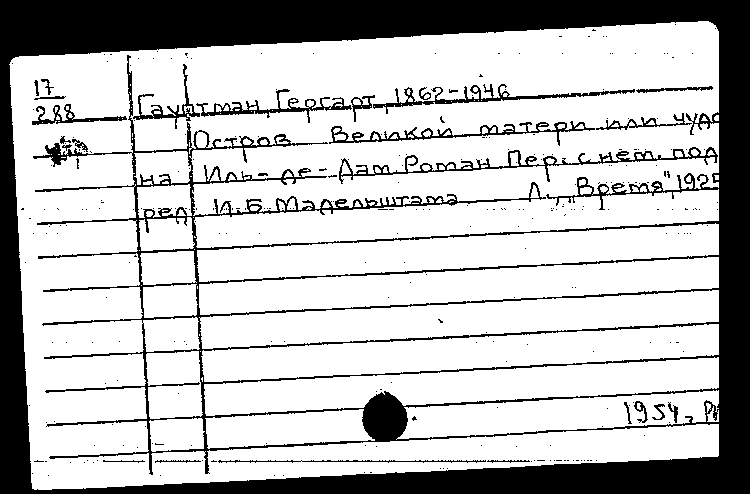 17
288
Гауптман, Гергарт, 1862-1946
Остров Великой матери или чудо
на Иль-де-Дам. Роман. Пер. с нем. под
ред. И.Б.Мадельштама Л., „Время", 1925
1954,